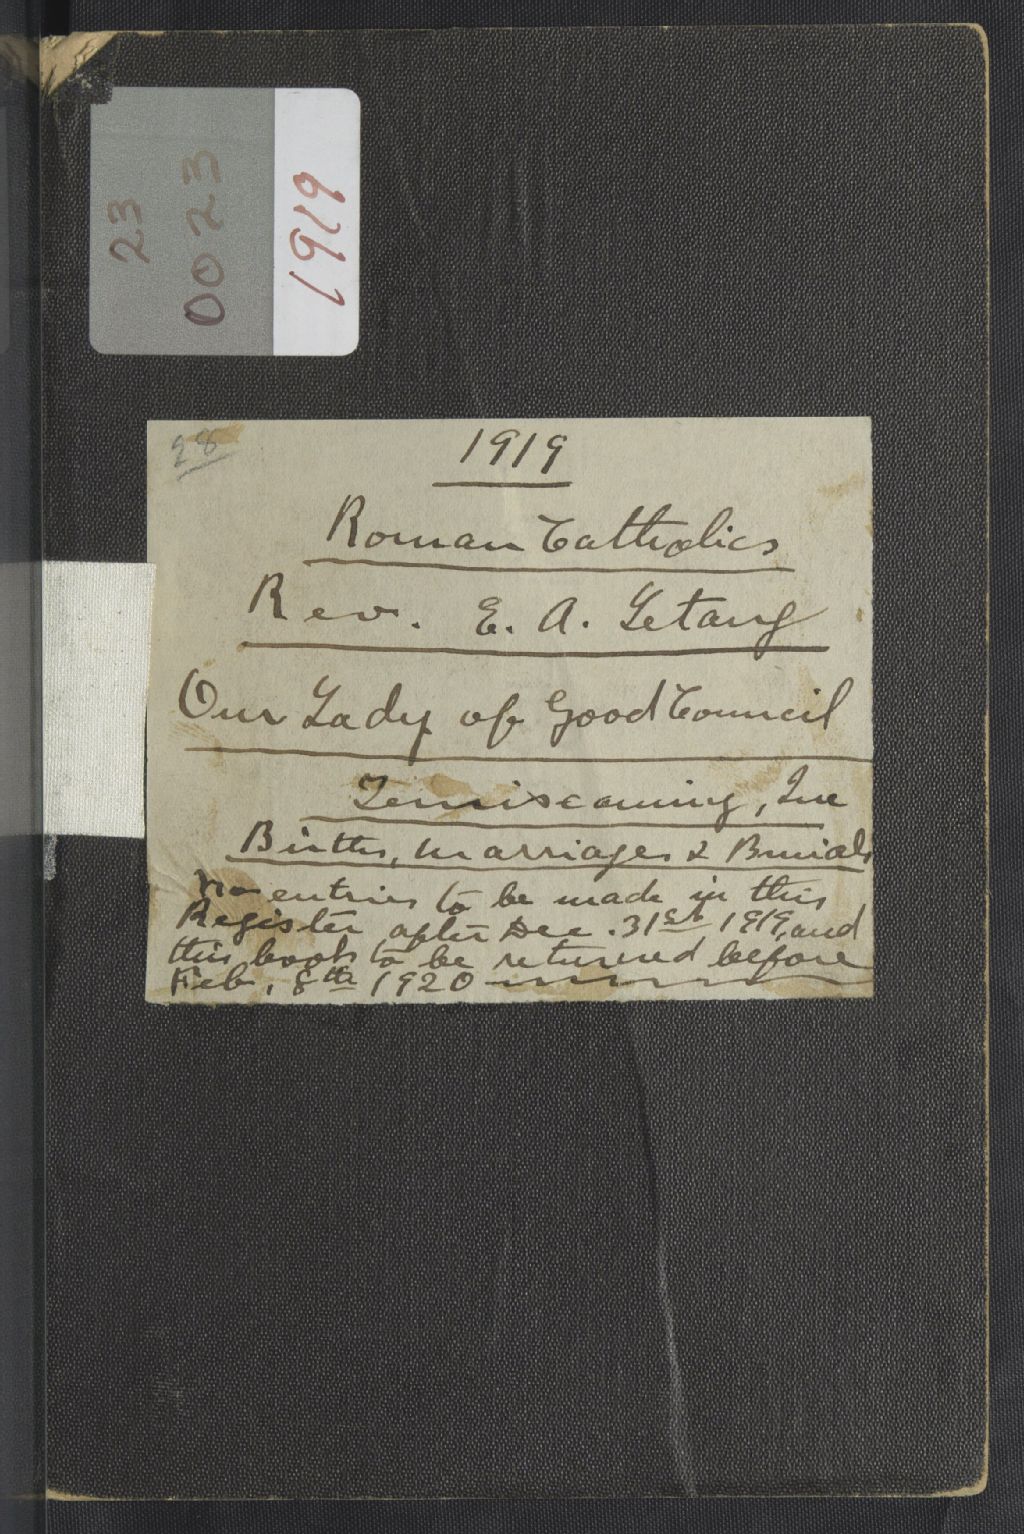 23
0023
1919
28
1919
Roman Catholics
Rev. E. A. Letang
Our Lady of Good Council
Temiscaming, Que
Births, Marriages & Burials
No entries to be made in this
Register after Dec. 31st 1919, and
this book to be returned before
Feb. 8th 1920